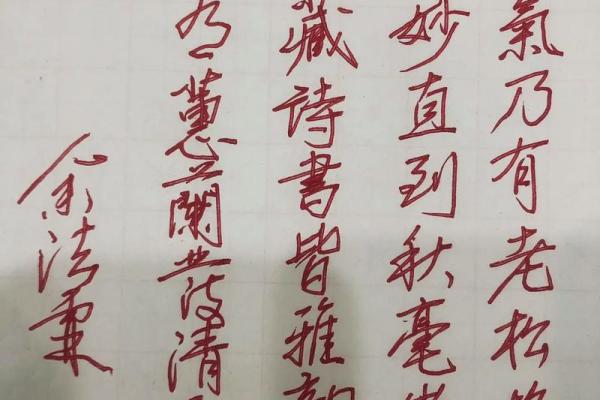 氣乃有老松
妙直到秋毫
藏詩書皆雅
蕙蘭發清
余法